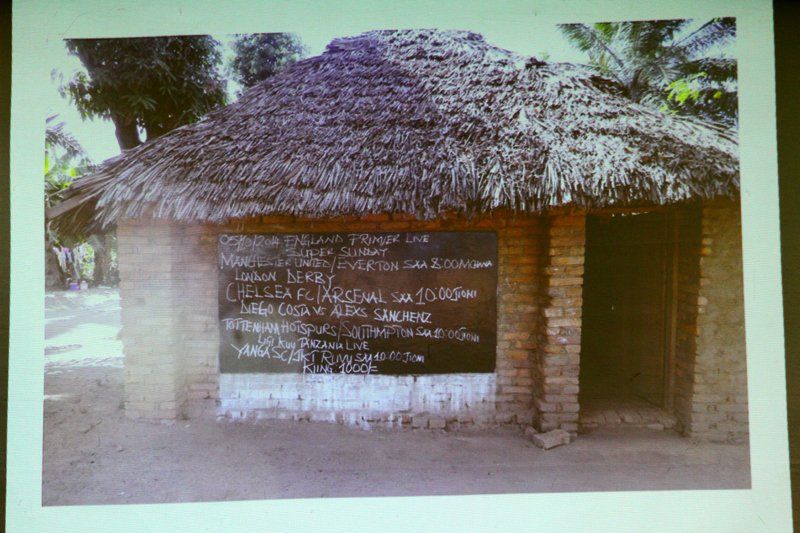 05/10/2014 ENGLAND PRIMIER LIVE
SUPER SUNDAY
MANCHESTER UNITED/EVERTON SAA 8:00 MCHANA
LONDON DERBY
CHELSEA FC/ARSENAL SAA 10:00 JIONI
DIEGO COSTA VS ALEXS SANCHENZ
TOTTENHAM HOTSPURS/SOUTHMPTON SAA 10:00 JIONI
LIGI KUU TANZANIA LIVE
YANGA SC/JKT RUVU SAA 10:00 JIONI
KIING 1000/=